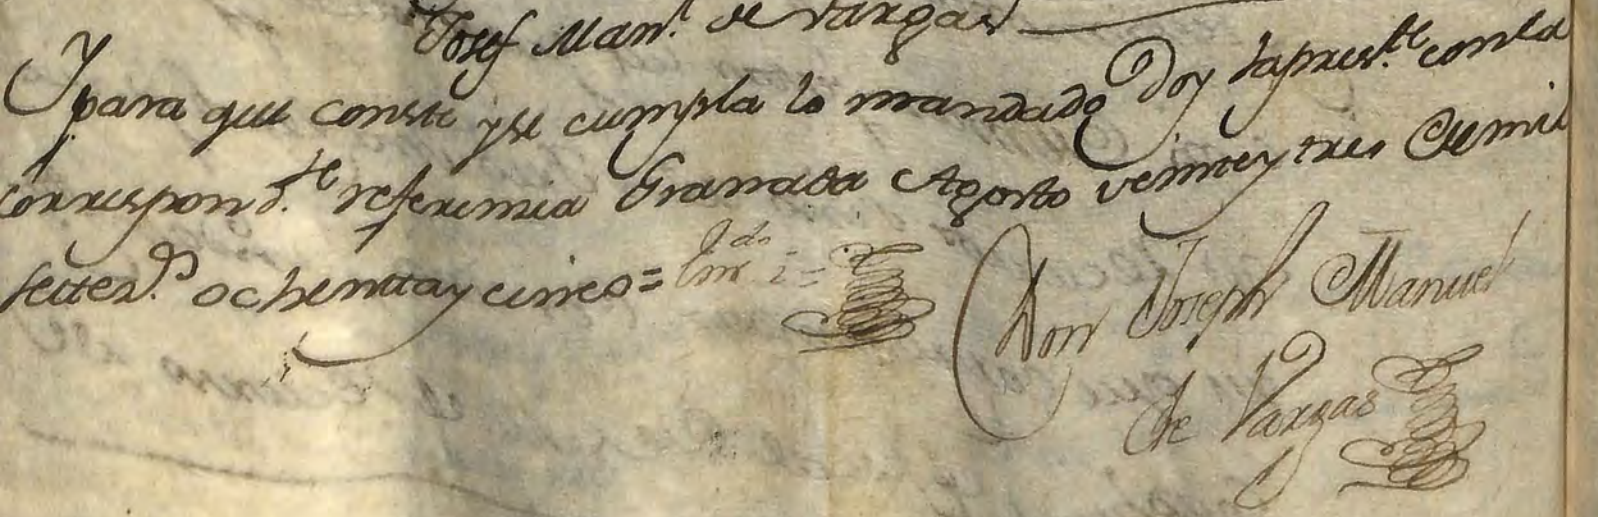 Josef Man.l de Vargas
Y para que conste y se cumpla lo mandado Doy la pres.te con la
correspond.te referencia Granada Agosto veinte y tres de mil
setez.s ochentta y cinco = Enm.do i =
Don Joseph Manuel
de Vargas